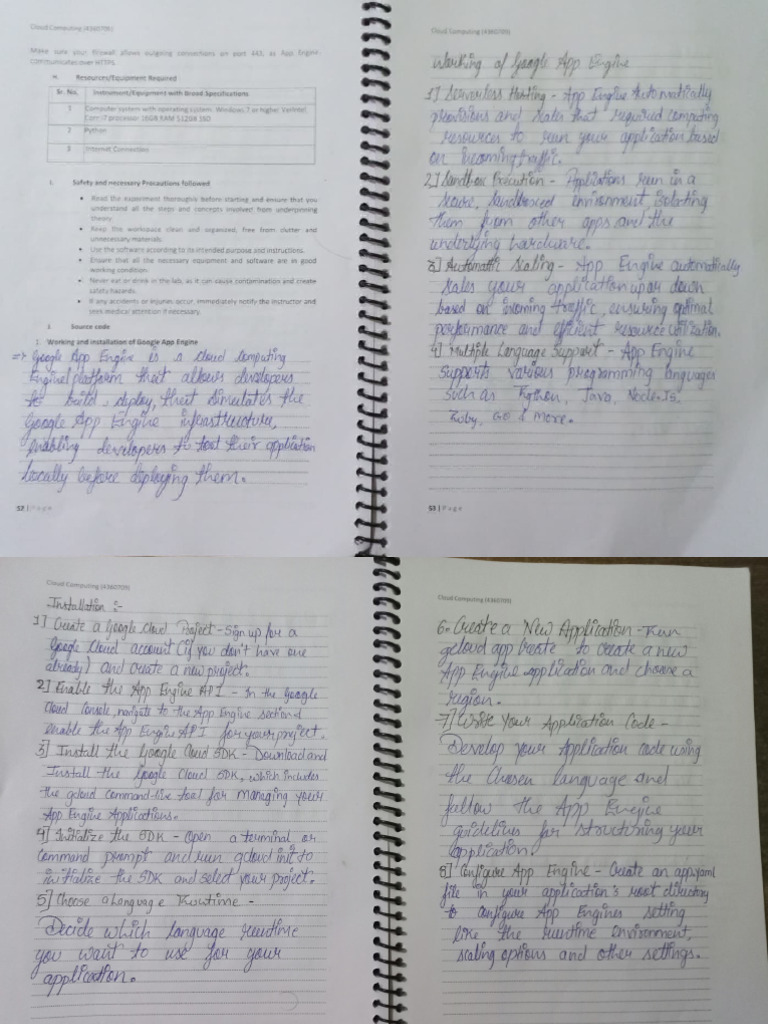 Cloud Computing (4360709)
Make sure your firewall allows outgoing connections on port 443, as App Engine
communicates over HTTPS.
H. Resources/Equipment Required
Sr. No. Instrument/Equipment with Broad Specifications
1 Computer system with operating system: Windows 7 or higher
Core i7 processor 16GB RAM 512GB SSD
2 Python
3 Internet Connection
I. Safety and necessary Precautions followed
• Read the experiment thoroughly before starting and ensure that you
understand all the steps and concepts involved from underpinning
theory.
• Keep the workspace clean and organized, free from clutter and
unnecessary materials.
• Use the software according to its intended purpose and instructions.
• Ensure that all the necessary equipment and software are in good
working condition.
• Never eat or drink in the lab, as it can cause contamination and create
safety hazards.
• If any accidents or injuries occur, immediately notify the instructor and
seek medical attention if necessary.
J. Source code
1. Working and installation of Google App Engine
=> Google App Engine is a cloud computing
platform that allows developers
to build, deploy, that simulates the
Google App Engine infrastructure,
enabling developers to test their application
locally before deploying them.
52 | Page
Cloud Computing (4360709)
Working of Google App Engine
1] Serverless Hosting - App Engine Automatically
provisions and scales that required computing
resources to run your application based
on incoming traffic.
2] Sandbox Execution - Applications run in a
secure, sandboxed environment isolating
them from other apps and the
underlying hardware.
3] Automatic Scaling - App Engine automatically
scales your application up or down
based on incoming traffic, ensuring optimal
performance and efficient resource utilization.
4] Multiple Language Support - App Engine
supports various programming languages
such as Python, Java, Node.Js,
Ruby, GO & More.
53 | Page
Cloud Computing (4360709)
Installation :-
1] Create a Google Cloud Project - Sign up for a
Google Cloud account (if you don't have one
already) and create a new project.
2] Enable the App Engine API - In the Google
Cloud Console, navigate to the App Engine section &
enable the App Engine API for your project.
3] Install the Google Cloud SDK - Download and
Install the Google Cloud SDK, which includes
the gcloud command-line tool for managing your
App Engine Applications.
4] Initialize the SDK - Open a terminal or
command prompt and run gcloud init to
initialize the SDK and select your project.
5] Choose a Language Runtime -
Decide which language runtime
you want to use for your
application.
Cloud Computing (4360709)
6. Create a New Application - Run
gcloud app create to create a new
App Engine application and choose a
region.
7] Write Your Application Code -
Develop your Application code using
the Chosen language and
follow the App Engine
guidelines for structuring your
application.
8] Configure App Engine - Create an app.yaml
file in your application's root directory
to configure App Engines setting
like the runtime environment,
scaling options and other settings.